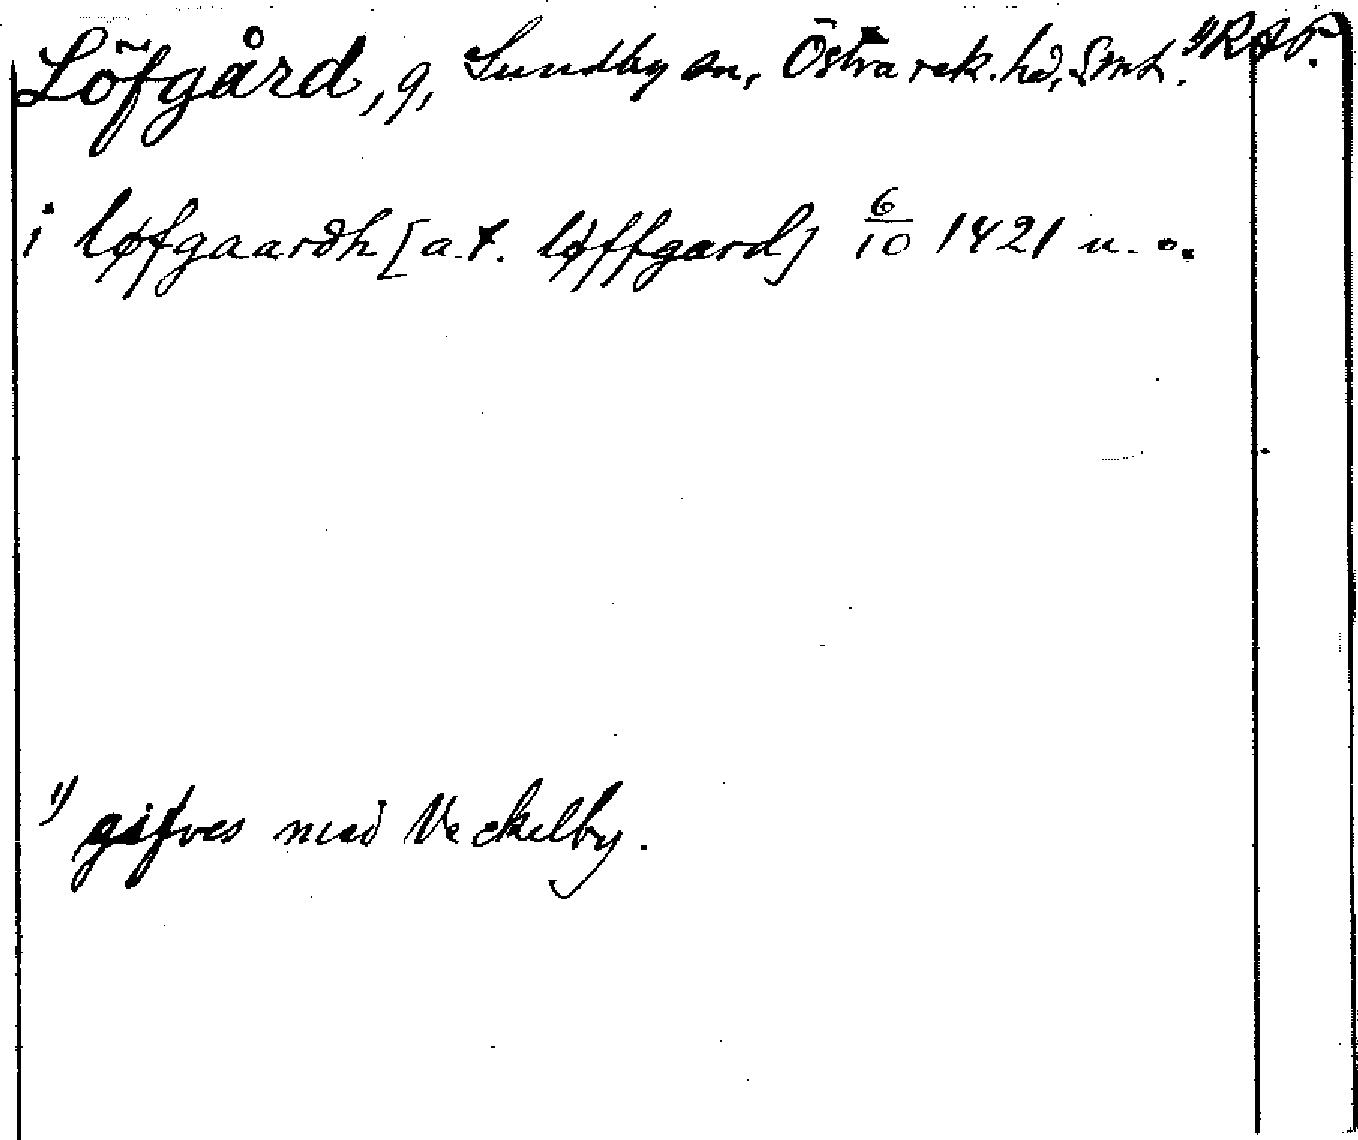 Löfgård, g, Sundby sn, Östra rek. hd, Smh. 1) RAP.
i løfgaardh [a.t. løffgard] 6/10 1421 u. o.
1) gifves med Veckelby.